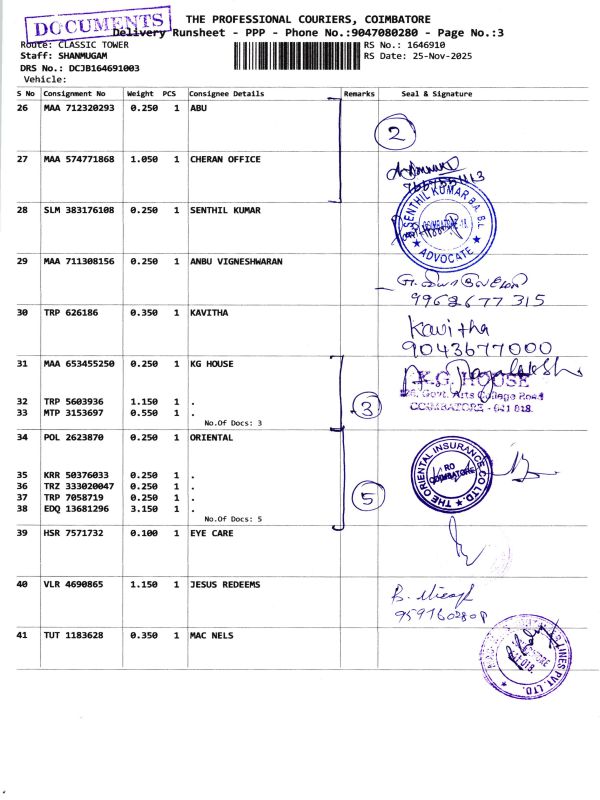 DOCUMENTS
THE PROFESSIONAL COURIERS, COIMBATORE
Delivery Runsheet - PPP - Phone No.:9047080280 - Page No.:3
Route: CLASSIC TOWER
RS No.: 1646910
Staff: SHANMUGAM
RS Date: 25-Nov-2025
DRS No.: DCJB164691003
Vehicle:
S No Consignment No Weight PCS Consignee Details Remarks Seal & Signature
26 MAA 712320293 0.250 1 ABU
2
27 MAA 574771868 1.050 1 CHERAN OFFICE
28 SLM 383176108 0.250 1 SENTHIL KUMAR
SENTHIL KUMAR BA. B.L
ADVOCATE
29 MAA 711308156 0.250 1 ANBU VIGNESHWARAN
9962677315
30 TRP 626186 0.350 1 KAVITHA
Kavitha
9043677000
31 MAA 653455250 0.250 1 KG HOUSE
K.G. HOUSE
Govt. Arts College Road
COIMBATORE - 641 018.
32 TRP 5603936 1.150 1 .
33 MTP 3153697 0.550 1 .
3
No.Of Docs: 3
34 POL 2623870 0.250 1 ORIENTAL
THE ORIENTAL INSURANCE CO LTD.
RO
COIMBATORE
35 KRR 50376033 0.250 1 .
36 TRZ 333020047 0.250 1 .
37 TRP 7058719 0.250 1 .
38 EDQ 13681296 3.150 1 .
5
No.Of Docs: 5
39 HSR 7571732 0.100 1 EYE CARE
40 VLR 4690865 1.150 1 JESUS REDEEMS
9597602808
41 TUT 1183628 0.350 1 MAC NELS
LINES PVT. LTD.